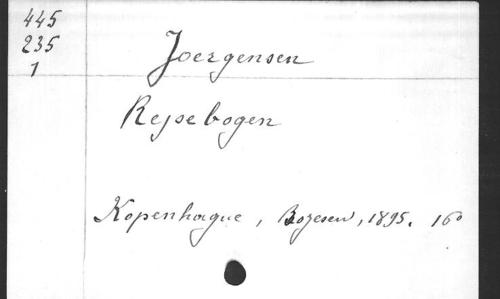 445
235
1
Joergensen
Rejsebogen
Kopenhague, Bojesen, 1895. 16º